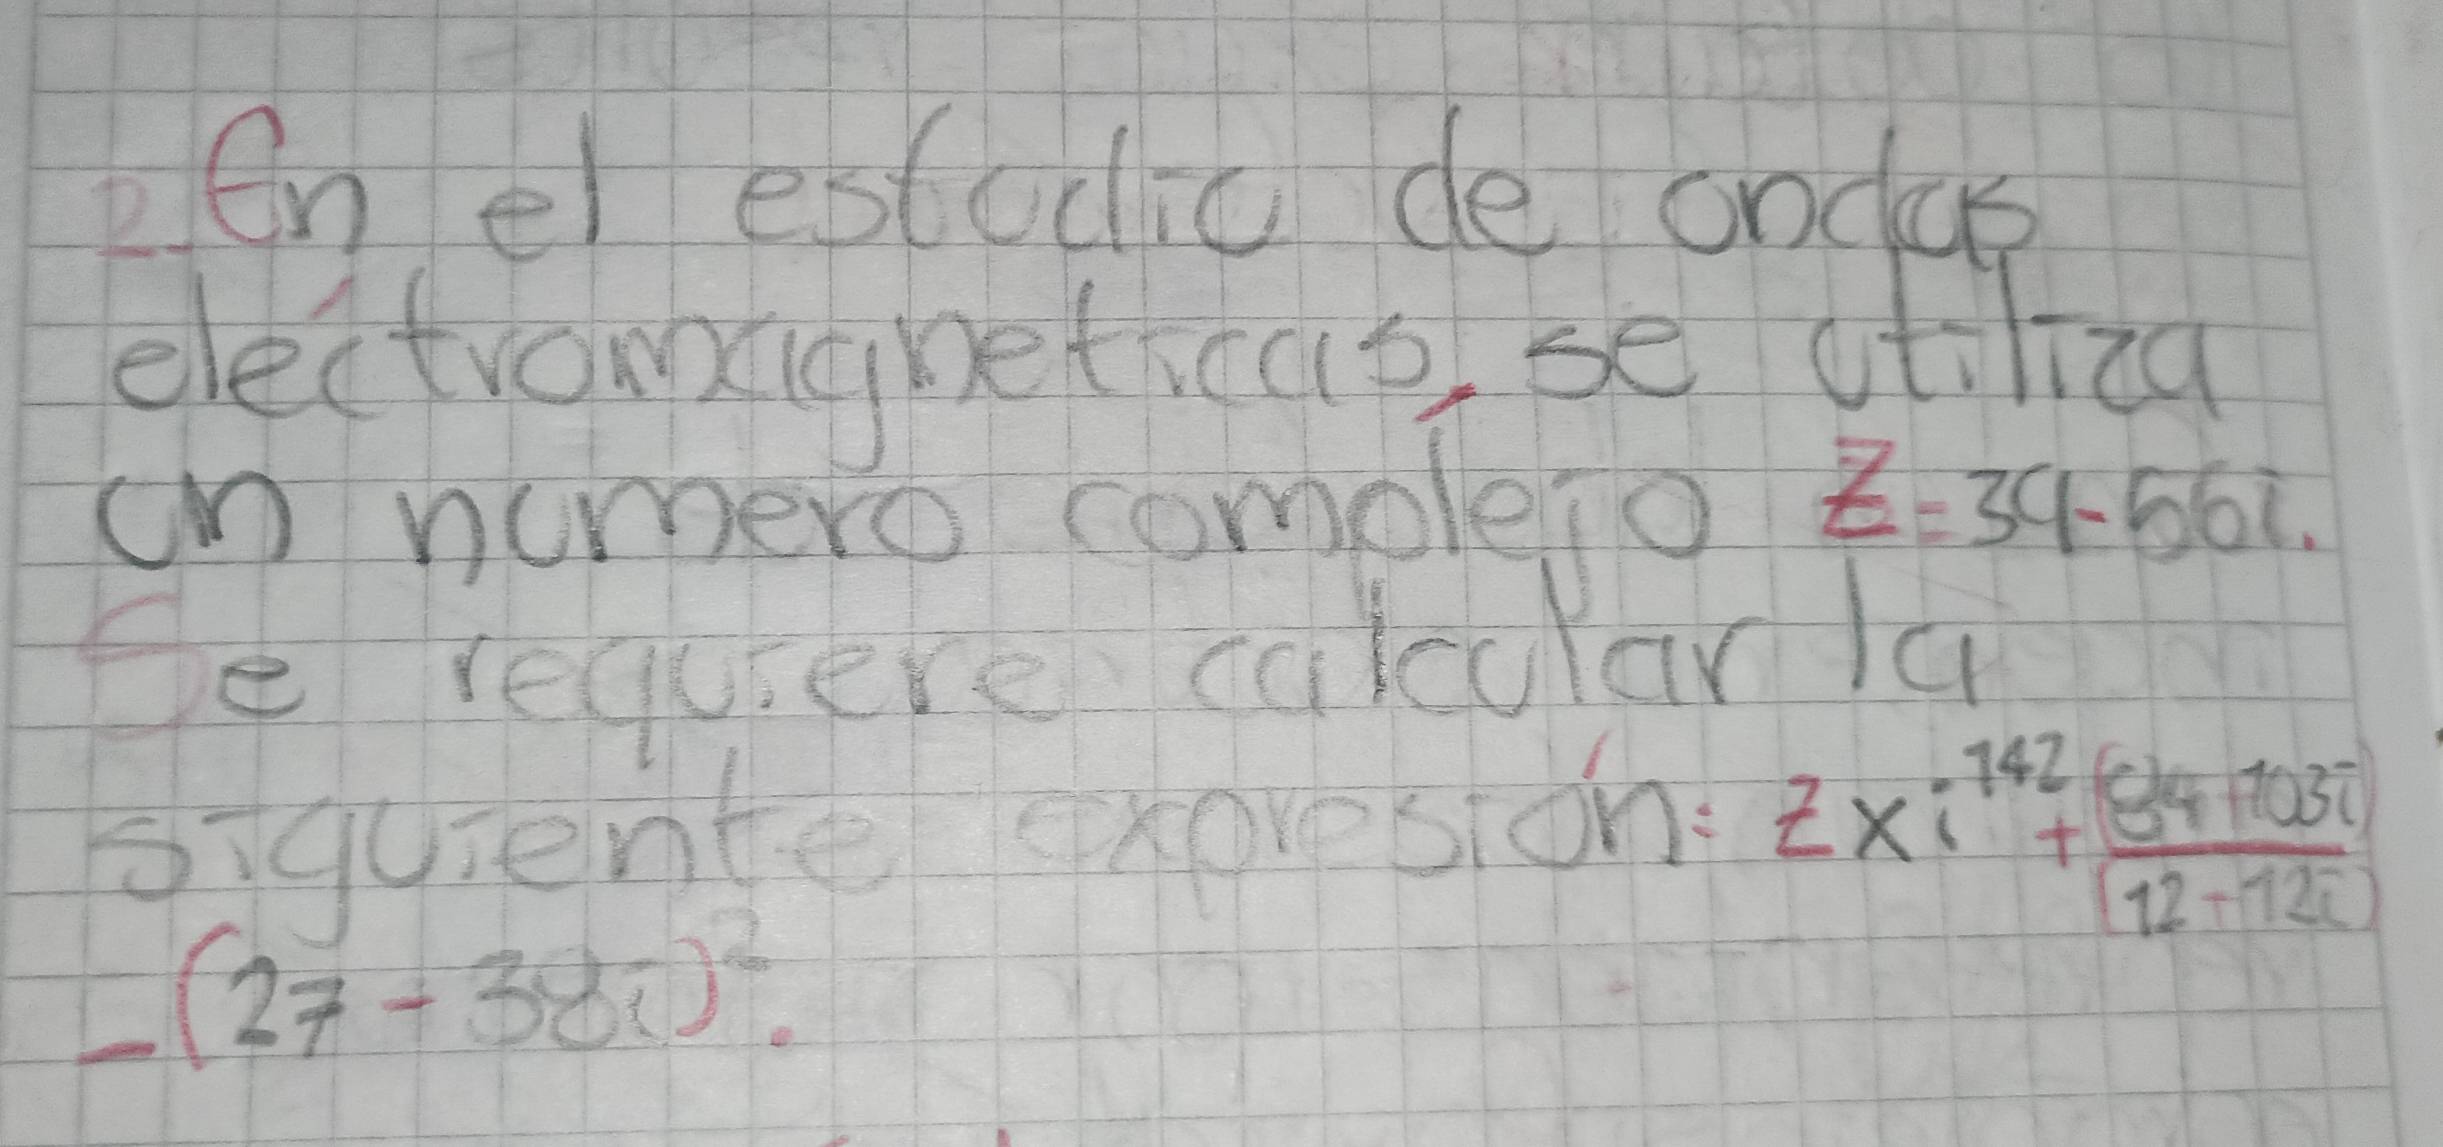 2. En el estudio de ondas
eléctromagneticas, se utiliza
un numero complejo Z=34-56i.
Se requiere calcular la
siguiente expresión: Z x i¹⁴² + (84+103i)/(12-12i)
-(27-38i)².